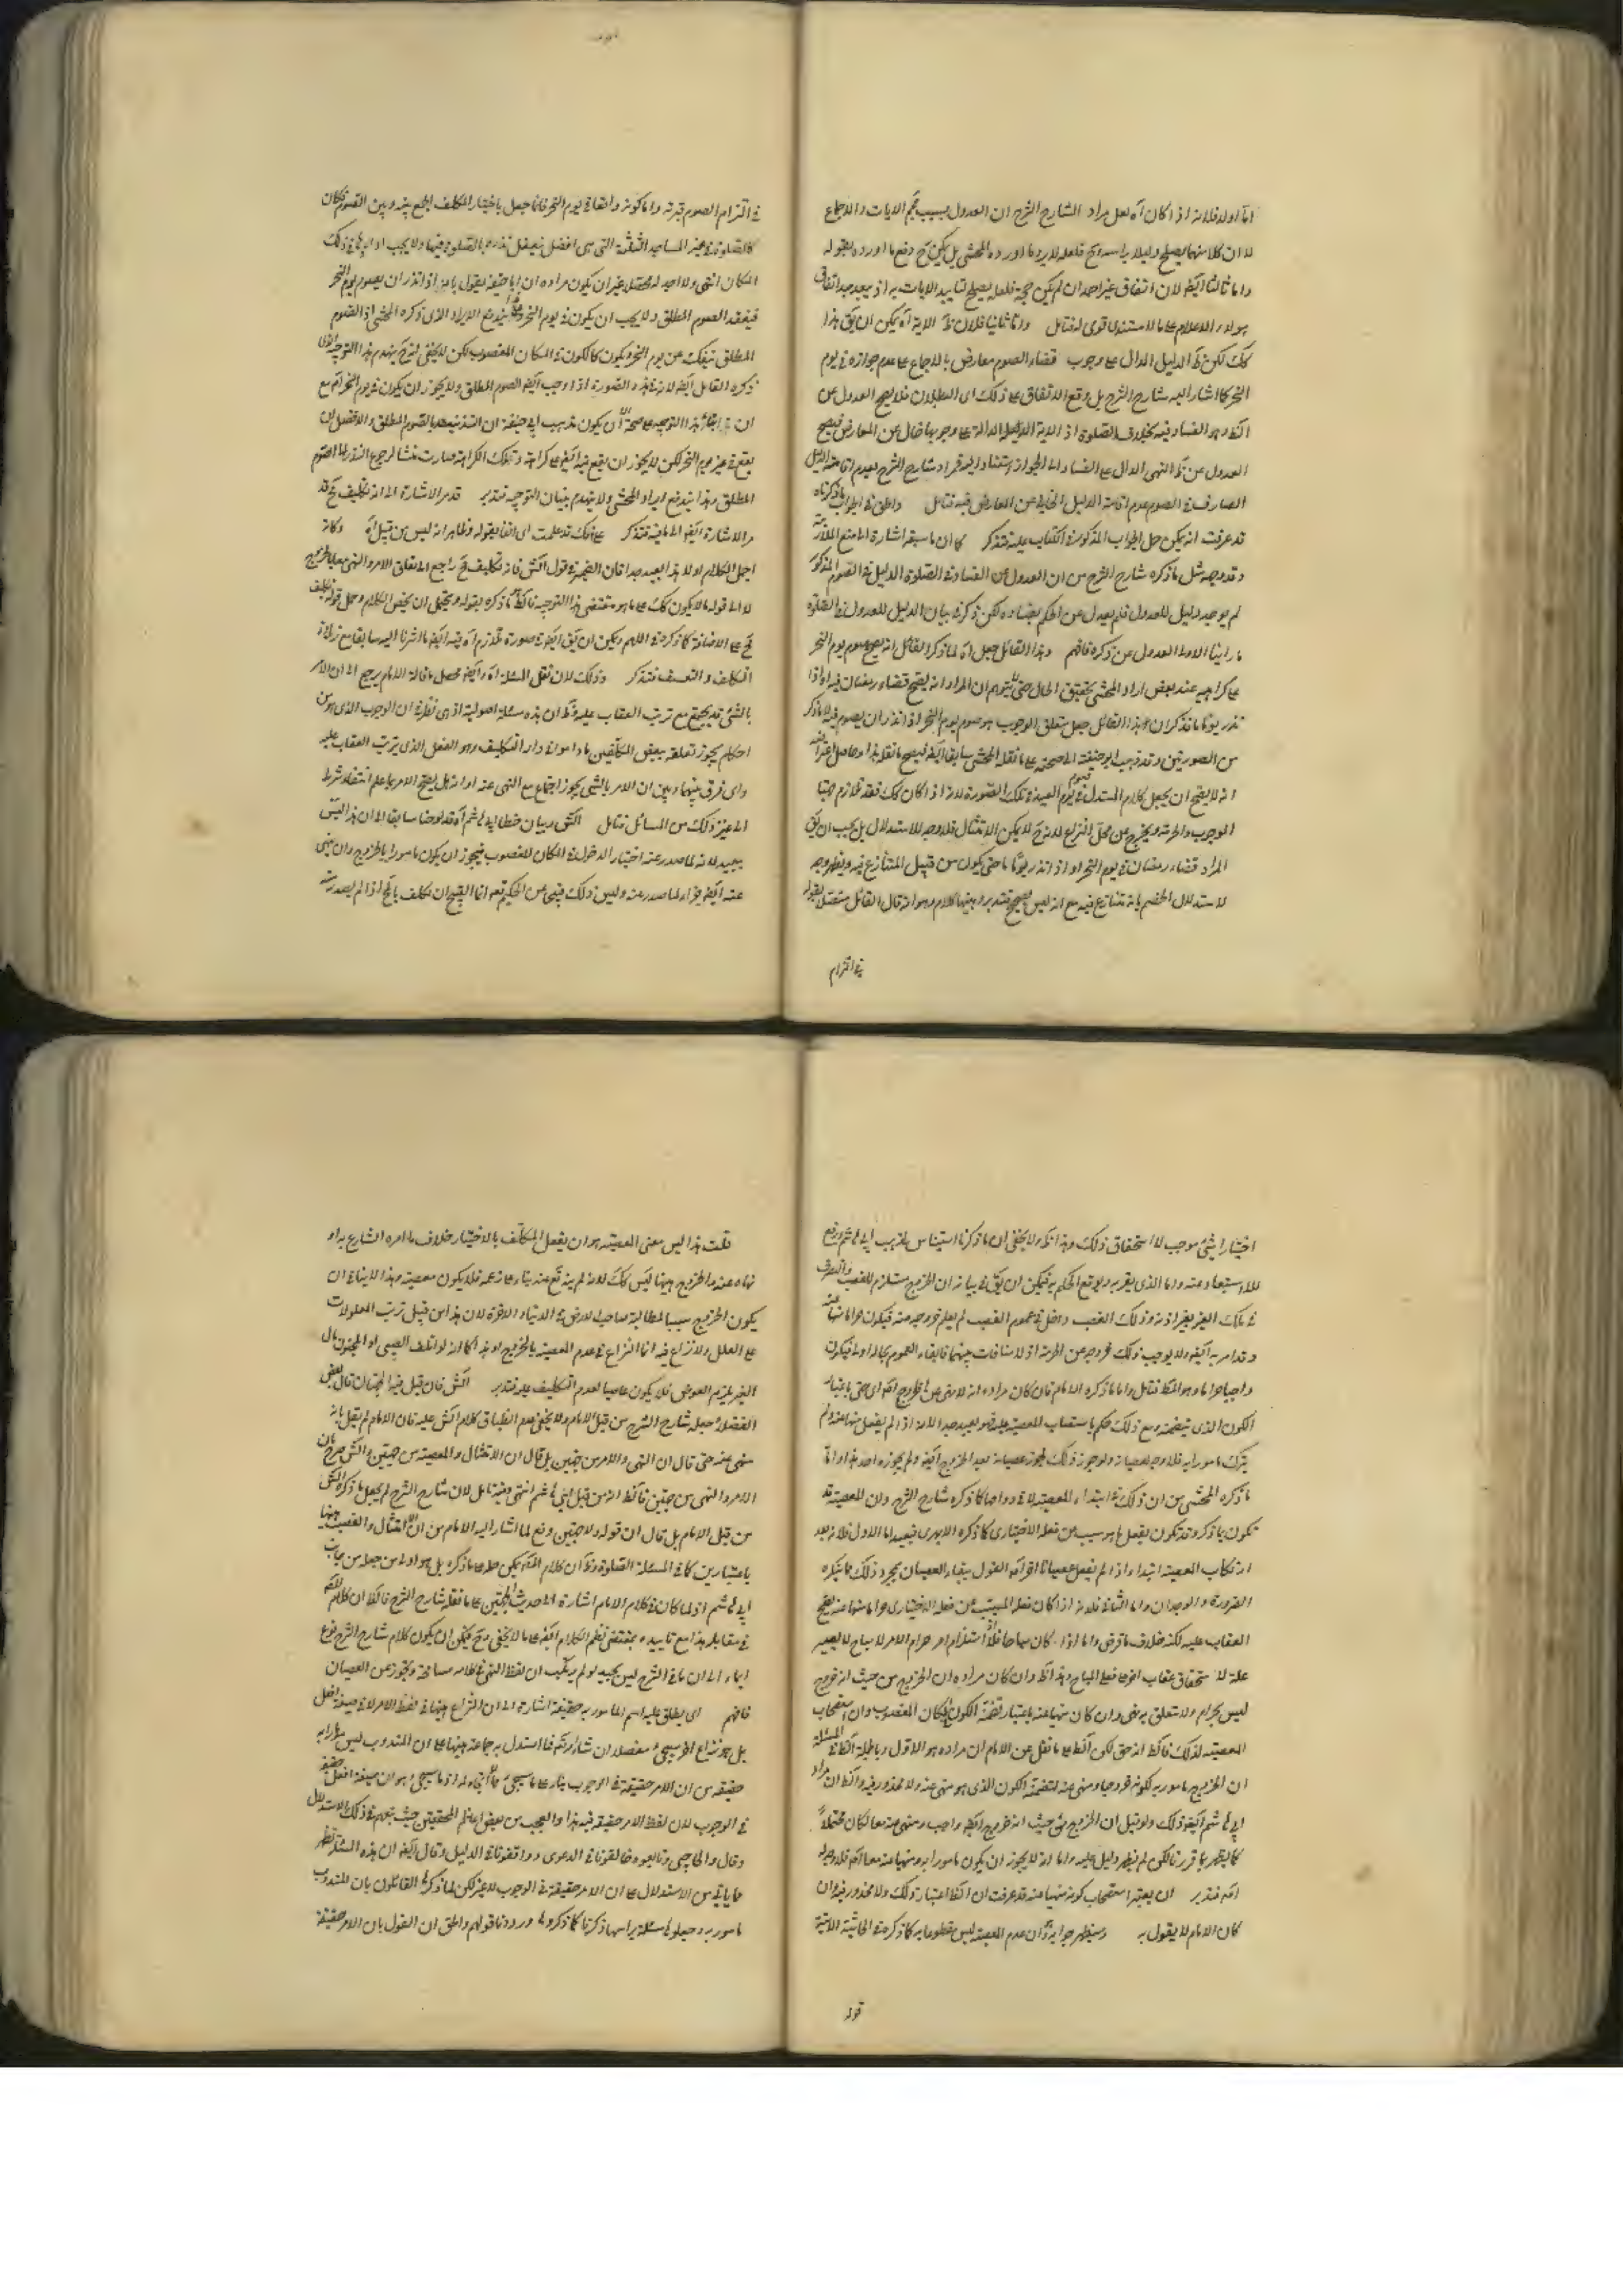 اما اولا فلانه اذا كان اه لعل مراد الشارح الشرح ان العدول بسبب الايات والاجماع
لا ان كلا منهما يصلح دليلا براسه فلعله لا يرد ما اورده المحشى بل يمكن دفع ما اورده بقوله
واما ثالثا ايضا لان اتفاق غير واحد ان لم يكن حجة فلعله يصلح لتاييد الايات به اذ يبعد جدا اتفاق
هولاء الاعلام على ما لا مستند له قوى فتامل واما ثانيا فلان ظ الاية اه يمكن ان يق هذا
كك لكن ظ الدليل الدال على وجوب قضاء الصوم معارض بالاجماع على عدم جوازه فى يوم
النحر كما اشار اليه شارح الشرح بل وقع الاتفاق على ذلك اى البطلان فلا يصح العدول عن
الظ وهو الفساد فيه بخلاف الصلوة اذ الاية الدالة على وجوبها خال عن المعارض فيصح
العدول عن ظ النهى الدال على الفساد الى الجواز
الصارف فى الصوم عدم اقامة الدليل الخالى عن المعارض فيه فتامل والحق فى الجواب ما ذكرناه
قد عرفت انه يمكن حمل الجواب المذكور فى الكتاب عليه فتذكر كما ان ما سبق اشارة الى منع
وقد وجه مثل ما ذكره شارح الشرح من ان العدول عن الفساد فى الصلوة الدليل فى الصوم المذكور
لم يوجد دليل للعدول فلم يعدل عن الحكم بفساده لكن ذكر فى بيان الدليل للعدول فى الصلوة
ما راينا الاولى العدول عن ذكره فافهم وهذا القائل جعل اه لما ذكر القائل انه يصح صوم يوم النحر
على كراهية عند بعض اراد المحشى تحقيق الحال حتى لا يتوهم ان المراد انه يصح قضاء رمضان فيه او اذا
نذر يوما ما فذكر ان هذا القائل جعل متعلق الوجوب هو صوم يوم النحر اذا نذر ان يصوم فيه لا ما ذكر
من الصورتين وقد ذهب ابو حنيفة الى صحته على ما نقله المحشى سابقا ايضا فيصح ما نقله هذا وحاصل
انه لا يصح ان يجعل كلام المستدل فى صوم يوم العيد فى تلك الصورة لانه اذا كان كك فقد تلازم جهتا
الوجوب والحرمة ويخرج عن محل النزاع لانه ح لا يمكن الامتثال فلا وجه للاستدلال بل يجب ان يق
المراد قضاء رمضان فى يوم النحر او اذا نذر يوما ما حتى يكون من قبيل المتنازع فيه ويظهر وجه
لاستدلال الخصم بانه تنازع فيه مع انه ليس بصحيح فتدبر وهيهنا كلام وهو انه قال القائل متصلا بقوله
فى التزام
فى التزام الصوم قربة واما كونه واقعا فى يوم النحر فانما جعل باختيار المكلف الجمع بينه وبين الصوم فكان
كالصلوة فى غير المساجد الثلثة التى هى افضل فيفعل نذره بالصلوة فيها ولا يجب اداؤها فى ذلك
المكان انتهى ولا احد له محتمل غير ان يكون مراده ان ابا حنيفة يقول بانه اذا نذر ان يصوم يوم النحر
فينعقد الصوم المطلق ولا يجب ان يكون فى يوم النحر يندفع الايراد الذى ذكره المحشى اذ الصوم
المطلق ينفك عن يوم النحر ويكون كالكون فى المكان المغصوب لكن لا يخفى انه ح ينهدم هذا التوجيه الذى
ذكره القائل ايضا لانه فى هذه الصورة اذا وجب ايضا الصوم المطلق ولا يجوز ان يكون فى يوم النحر اه مع
ان ابتناء هذا التوجيه على صحة ان يكون مذهب ابى حنيفة ان النذر ينعقد بالصوم المطلق والافضل ان
يقع فى غير يوم النحر لكن لا يجوز ان يقع فيه ايضا على كراهة وتلك الكراهة صارت منشا لرجوع النذر الى الصوم
المطلق وبهذا يندفع ايراد المحشى ولا ينهدم بنيان التوجيه فتدبر قد مر الاشارة الى انه تكليف مح قد
مر الاشارة ايضا الى ما فيه فتذكر على انك قد علمت اى انفا بقوله وظاهر انه ليس من قبيل اه وكانه
اجمل الكلام اولا هذا بعيد جدا فان الضمير فى قول الش فانه تكليف مح راجع الى تعلق الامر والنهى معا بالخروج
لا الى قوله ما لا يكون كك على ما هو مقتضى هذا التوجيه فالظ ما ذكره بقوله ويحتمل ان يخص الكلام وحمل قوله تكليف
مح على الاضافة كما ذكر فى اللهم ويمكن ان يق ايضا فى صورة تلازم اه فيه ايضا ما اشرنا اليه سابقا مع زيادة
التكلف والتعسف فتذكر وذلك لان نقل المسئلة اه وايضا محصل ما قاله الامام يرجع الى ان الامر
بالشئ قد يجتمع مع ترتب العقاب عليه وظ ان هذه مسئلة اصولية اذ هى نظرية ان الوجوب الذى هو من
احكام يجوز تعلقه ببعض المكلفين ما داموا فى دار التكليف وهو الفعل الذى يترتب العقاب عليه
واى فرق بينهما وبين ان الامر بالشئ يجوز اجتماعه مع النهى عنه او انه هل يصح الامر بما علم انتفاء شرطه
الى غير ذلك من المسائل فتامل الش وبيان خطا ابى هاشم اه قد لوحنا سابقا الى ان هذا ليس
ببعيد لانه لما صدر عنه اختيار الدخول فى المكان المغصوب فيجوز ان يكون مامورا بالخروج وان نهى
عنه ايضا جزاء لما صدر منه وليس ذلك قبيحا من الحكيم نعم انما القبيح ان يكلف بالمح اذا لم يصدر منه
اختيارا شئ موجب لاستحقاق ذلك وهذا ظ ولا يخفى ان ما ذكرنا استيناس لمذهب ابى هاشم ورفع
للاستبعاد منه واما الذى يقر به ويوقع الحكم به فيمكن ان يق فى بيانه ان الخروج مستلزم للغصب والتصرف
فى ملك الغير بغير اذنه وذلك الغصب داخل فى عموم الغصب لم يعلم خروجه منه فيكون حراما منهيا عنه
وقد امر به ايضا ولا يوجب ذلك خروجه عن الحرمة اذ لا منافات بينهما فابقاء العموم بحاله اولى فيكون
واجبا حراما وهو المط فتامل واما ما ذكره الامام فان كان مراده انه لا نهى عن الخروج اصلا اى حتى باعتبار
الكون الذى يتضمنه ومع ذلك حكم باستصحاب المعصية عليه فهو بعيد جدا لانه اذا لم يفعل منهيا عنه ولم
يترك مامورا به فلا وجه لعصيانه ولو جوز ذلك لجوز عصيانه بعد الخروج ايضا ولم يجوزه احد هذا واما
ما ذكره المحشى من ان ذلك فى ابتداء المعصية لا فى دوامها كما ذكره شارح الشرح وان المعصية قد
تكون بما ذكر وقد تكون بفعل ما هو سبب عن فعله الاختيارى كما ذكره الابهرى فبعيد اما الاول فلانه بعد
ارتكاب المعصية ابتداء اذا لم يفعل عصيانا اخر اه القول ببقاء العصيان بمجرد ذلك مما ينكره
الضرورة والوجدان واما الثانى فلانه اذا كان فعله المسبب عن فعله الاختيارى حراما منهيا عنه يصح
العقاب عليه لكنه خلاف ما فرض واما اذا كان مباحا فلا استلزام امر حرام لامر لا مباح لا يصير
علة لاستحقاق عقاب اخر على فعل المباح وهذا ظ وان كان مراده ان الخروج من حيث انه خروج
ليس بحرام ولا متعلق به نهى وان كان منهيا عنه باعتبار تضمنه الكون فى المكان المغصوب وان استصحاب
المعصية لذلك فالظ انه حق لكن الظ على ما نقل عن الامام ان مراده هو الاول وبالجملة الظ فى المسئلة
ان الخروج مامور به لكونه خروجا ومنهى عنه لتضمنه الكون الذى هو منهى عنه ولا محذور فيه والظ ان مراد
ابى هاشم ايضا ذلك ولو قيل ان الخروج من حيث انه خروج ايضا واجب ومنهى عنه معا لكان محتملا
كما يظهر مما قررنا لكن لم يظهر دليل عليه واما انه لا يجوز ان يكون مامورا به ومنهيا عنه معا اصلا فلا وجه له
اصلا فتدبر ان يعتبر استصحاب كونه منهيا عنه قد عرفت ان الظ اعتبار ذلك ولا محذور فيه وان
كان الامام لا يقول به وسيظهر جوابه وان عدم المعصية ليس مقطوعا به كما ذكر فى الحاشية الاتية
قوله
قلت هذا ليس معنى المعصية هو ان يفعل المكلف بالاختيار خلاف ما امره الشارع به او
نهاه عنه والخروج هيهنا ليس كك لانه لم ينه عنه بناء على زعمه فلا يكون معصية وهذا لا ينافى ان
يكون الخروج سببا لمطالبة صاحب الارض فى الدنيا والاخرة لان هذا من قبيل ترتب المعلولات
على العلل ولا نزاع فيه انما النزاع فى عدم المعصية بالخروج وهذا كما انه لو اتلف الصبى او المجنون مال
الغير يلزم العوض فلا يكون عاصيا لعدم التكليف عليه فتدبر الش فان قيل فيه الجهتان قال بعض
الفضلاء جعله شارح الشرح من قبل الامام ولا يخفى عدم انطباق كلام الش عليه فان الامام لم يقل بانه
منهى عنه حتى قال ان النهى والامر من جهتين بل قال ان الامتثال والمعصية من جهتين والش صرح بان
الامر والنهى من جهتين فالظ انه من قبل ابى هاشم انتهى وفيه تامل لان شارح الشرح لم يجعل ما ذكره الش
من قبل الامام بل قال ان قوله ولا جهتين دفع لما اشار اليه الامام من ان الامتثال والغصب هيهنا
باعتبارين كما فى المسئلة الصلوة وظ ان كلام المص يمكن حمله على ما ذكره بل هو اولى من جعله من جانب
ابى هاشم اذ لما كان فى كلام الامام اشارة الى حديث الجهتين على ما نقله شارح الشرح فالظ ان كلام المص
فى مقابله هذا مع تاييده بمقتضى نظم الكلام ايضا على ما لا يخفى وح فيمكن ان يكون كلام شارح الشرح نوع
ايماء الى ان ما فى الشرح ليس بجيد لو لم يرتكب ان لفظ النهى فى كلامه مسامحة وتجوز عن العصيان
فافهم اى يطلق عليه اسم المامور به حقيقة اشارة الى ان النزاع هيهنا فى لفظ الامر لا فى صيغة افعل
بل هو نزاع اخر سيجئ مفصلا ان شاء الله تعالى فما استدل به جماعة هيهنا على ان المندوب ليس مامورا به
حقيقة من ان الامر حقيقة فى الوجوب بناء على ما سيجئ لا ابتناء له اذ ما سيجئ هو ان صيغة افعل حقيقة
فى الوجوب لا ان لفظ الامر حقيقة فيه هذا والعجب من بعض اعاظم المحققين حيث تبعهم فى ذلك الاستدلال
وقال والحاجبى وتابعوه خالفونا فى الدعوى ووافقونا فى الدليل وقال ايضا ان هذه المسئلة تظهر
مما ياتى من الاستدلال على ان الامر حقيقة فى الوجوب لا غير لكن لما ذكرها القائلون بان المندوب
مامور به وجعلوها مسئلة براسها ذكرنا كما ذكروها ورددنا قولهم والحق ان القول بان الامر حقيقة